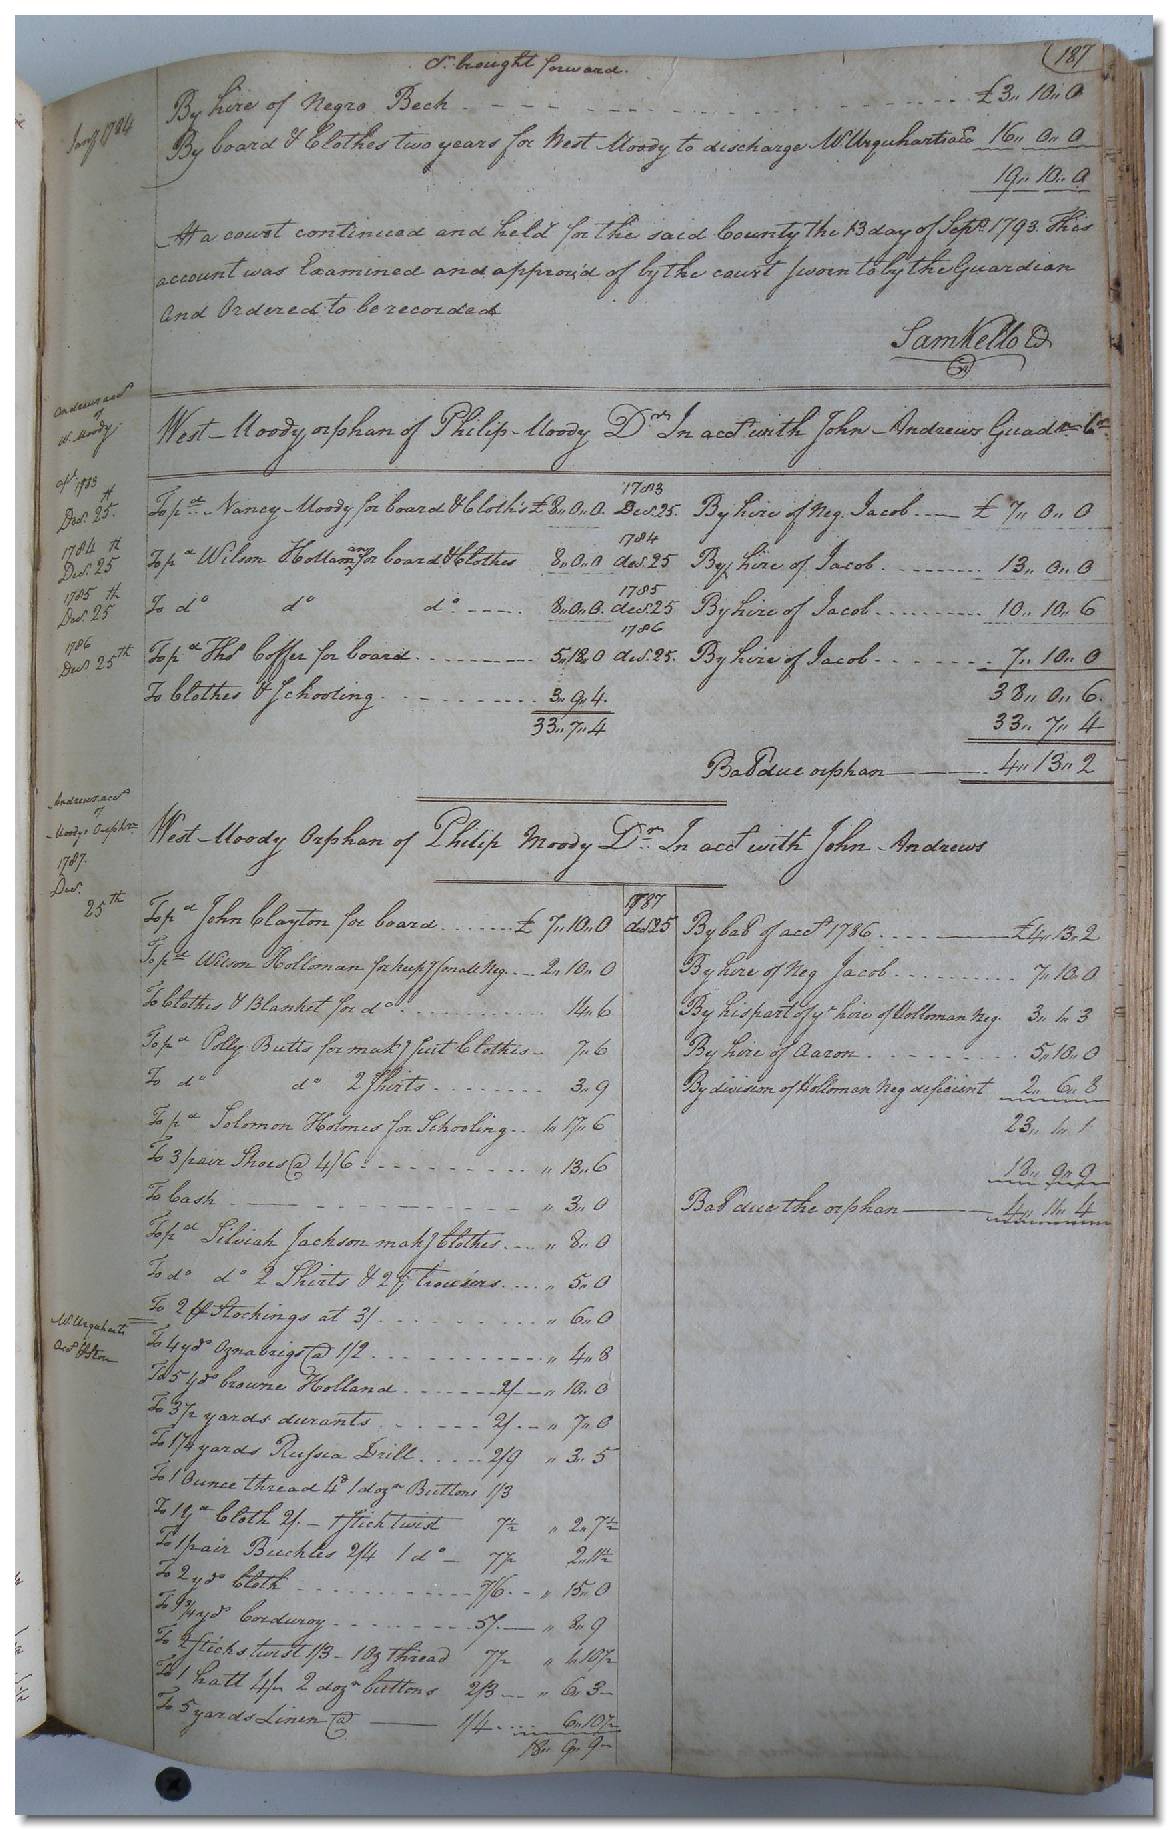 187
Cr. brought forward.
Jany 1784
By hire of Negro Beck £3,, 10,, 0
By board & Clothes two years for West Moody to discharge W Urquharts acct 16,, 0,, 0
19,, 10,, 0
At a court continued and held for the said County the 13 day of Septr. 1793. This
account was Examined and approv'd of by the court sworn to by the Guardian
and Ordered to be recorded
Sam Kello
Andrews acct
of
W. Moody
West Moody orphan of Philip Moody Dr. In acct with John Andrews Guadn Cr.
1783
Decr. 25th To pd. Nancy Moody for board & Cloths £8,, 0,, 0. 1783 Dec. 25. By hire of Neg. Jacob £ 7,, 0,, 0
1784
Decr. 25th To pd Wilson Holloman for board & Clothes 8,, 0,, 0 1784 dec. 25 By hire of Jacob 13,, 0,, 0
1785
Decr. 25th To do do do 8,, 0,, 0. 1785 dec. 25 By hire of Jacob 10,, 10,, 6
1786
Decr 25th To pd Thos Coffer for board 5,, 18,, 0 1786 dec. 25. By hire of Jacob 7,, 10,, 0
To Clothes & Schooling 3,, 9,, 4. 38,, 0,, 6.
33,, 7,, 4 33,, 7,, 4
Bal due orphan 4,, 13,, 2
Andrews acct
of
Moodys Orphn
1787.
Decr.
25th
West Moody Orphan of Philip Moody Dr. In acct with John Andrews
To pd John Clayton for board £ 7,, 10,, 0 1787 dec. 25 By bal of acct 1786 £4,, 13,, 2
To pd Wilson Holloman for keepg small Neg. 2,, 10,, 0 By hire of Neg Jacob 7,, 10,, 0
To Clothes & Blanket for do 14,, 6 By his part of ye hire of Holloman Neg. 3,, 1,, 3
To pd Polly Butts for makg suit Clothes 7,, 6 By hire of Aaron 5,, 10,, 0
To do do 2 Shirts 3,, 9 By division of Holloman Neg deficient 2,, 6,, 8
To pd Solomon Holmes for Schooling 1,, 17,, 6 23,, 1,, 1
To 3 pair Shoes @ 4/6 ,, 13,, 6 18,, 9,, 9
To Cash ,, 3,, 0 Bal due the orphan 4,, 11,, 4
To pd Silviah Jackson makg Clothes ,, 8,, 0
To do do 2 Shirts & 2 pr trousers ,, 5,, 0
To 2 pr Stockings at 3/ ,, 6,, 0
W. Urquharts
To 4 yds Oznabrigs @ 1/2 ,, 4,, 8
To 5 yds browne Holland 2/ ,, 10,, 0
To 3 1/2 yards durants 2/ ,, 7,, 0
To 1 1/4 yards Russia Drill 2/9 ,, 3,, 5
To 1 Ounce thread 4d 1 dozn Buttons 1/3
To 1 yd Cloth 2/. 1 stick twist 7 1/2 ,, 2,, 7 1/2
To 1 pair Buckles 2/4 1 do 7 1/2 2,, 11 1/2
To 2 yds Cloth 7/6 ,, 15,, 0
To 1 3/4 yds Corduroy 5/ ,, 8,, 9
To 2 sticks twist 1/3 1 oz thread 7 1/2 ,, 1,, 10 1/2
To 1 hatt 4/ 2 dozn buttons 2/3 ,, 6,, 3
To 5 yards Linen @ 1/4 6,, 10 1/2
18,, 9,, 9